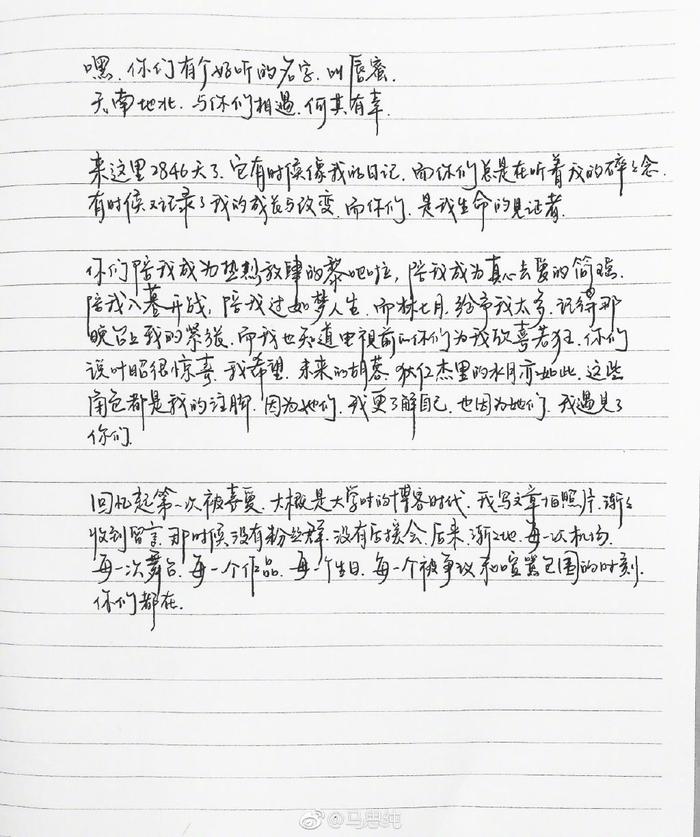 嘿、你们有个好听的名字、叫唇蜜、
天南地北、与你们相遇、何其有幸、
来这里2846天了、它有时候像我的日记、而你们总是在听着我的碎碎念、
有时候又记录了我的成长与改变、而你们、是我生命的见证者、
你们陪我成为热烈放肆的黎吧啦，陪我成为真心去爱的简瑶、
陪我入墓开战，陪我过如梦人生、而林七月、给予我太多、记得那
晚台上我的紧张、而我也知道电视前的你们为我欣喜若狂、你们
说叶昭很惊喜、我希望、未来的胡蓉、狄仁杰里的水月亦如此、这些
角色都是我的注脚、因为她们、我更了解自己、也因为她们、我遇见了
你们、
回忆起第一次被喜爱、大概是大学时的博客时代、我写文章拍照片、渐々
收到留言、那时候、没有粉丝群、没有后援会、后来、渐々地、每一次机场、
每一次舞台、每一个作品、每一个生日、每一个被争议和喧嚣包围的时刻、
你们都在、
@马思纯